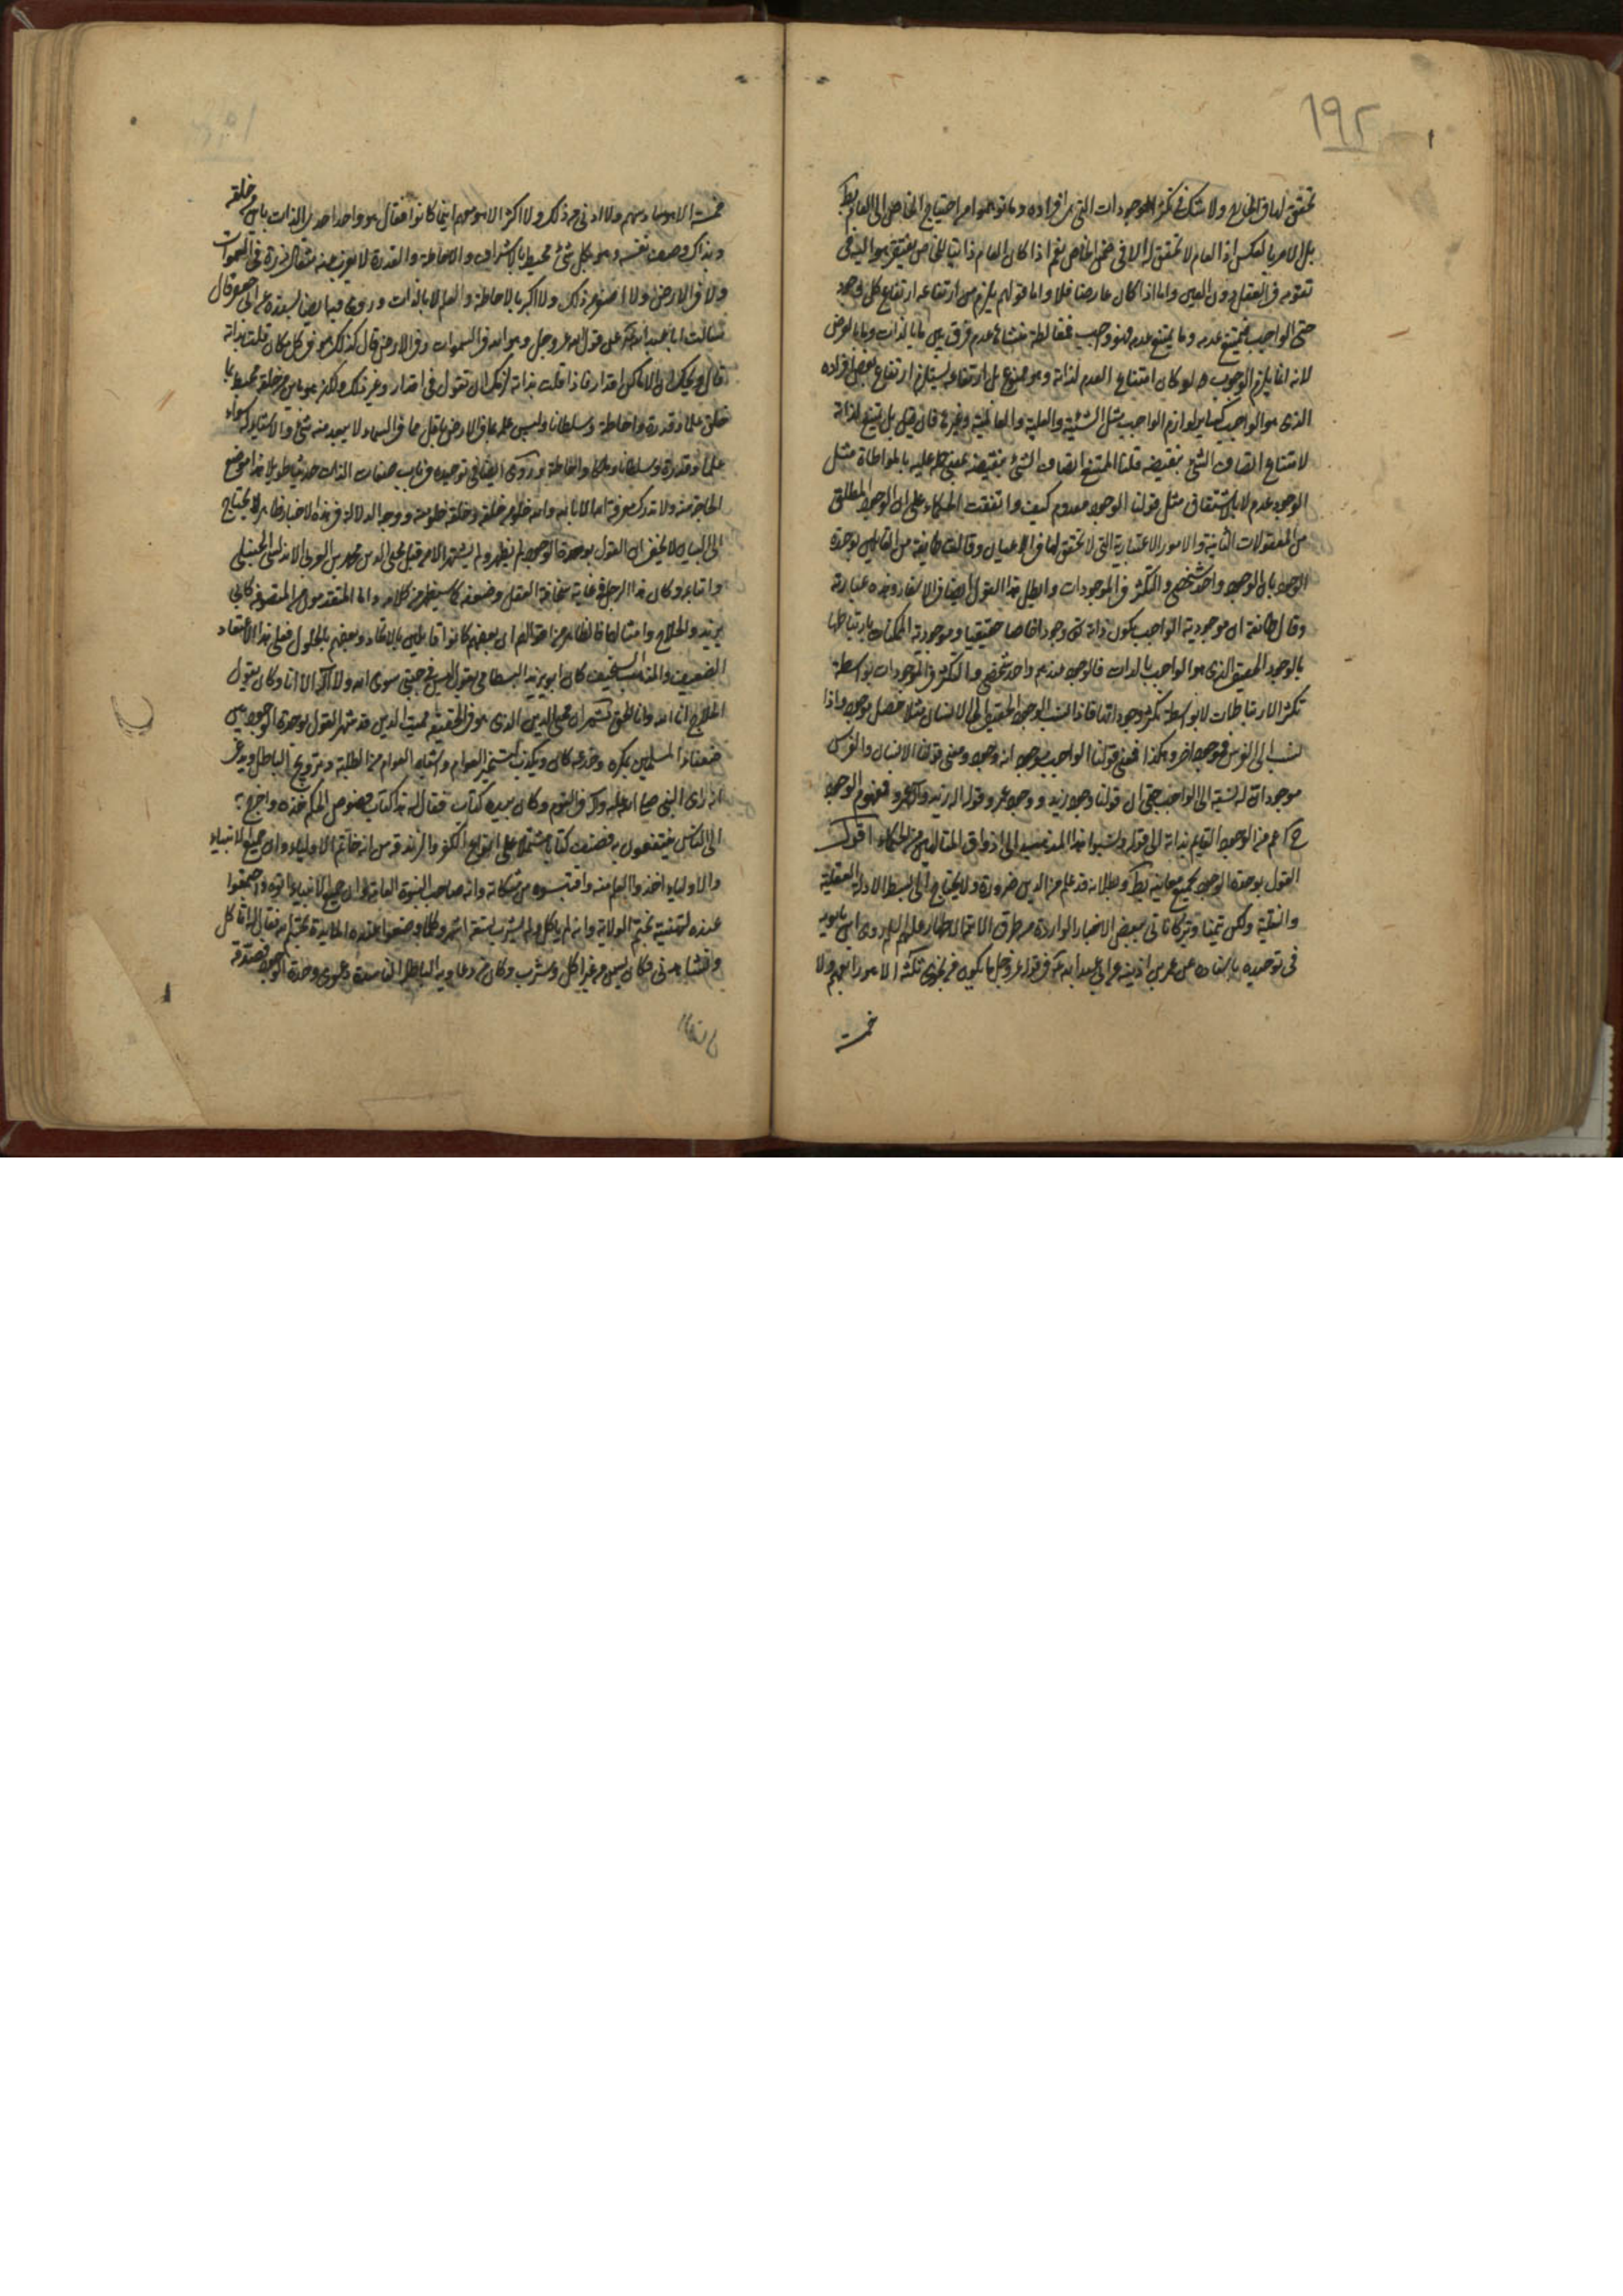 ١٩٢
تحقق لها فی الخارج ولا شک فی تکثر الموجودات التی هی افراده وما توهموا من احتیاج الخاص الی العام بط
بل الامر بالعکس اذ العام لا تحقق له الا فی ضمن الخاص نعم اذا کان العام ذاتیا للخاص یفتقر هو الیه فی
تقومه فی العقل دون العین واما اذا کان عارضا فلا واما قولهم یلزم من ارتفاعه ارتفاع کل وجود
حتی الواجب فیمتنع عدمه وما یمتنع عدمه فهو واجب فمغالطة منشاءها عدم فرق بین ما بالذات وما بالعرض
لانه انما یلزم الوجوب لو کان امتناع العدم لذاته وهو ممنوع بل ارتفاعه یستلزم ارتفاع بعض افراده
الذی هو الواجب کسایر لوازم الواجب مثل الشیئیة والعلیة والعالمیة وغیرها فان قیل بل یمتنع لذاته
لامتناع اتصاف الشئ بنقیضه قلنا الممتنع اتصاف الشئ بنقیضه بمعنی حمله علیه بالمواطاة مثل
الوجود عدم لا بالاشتقاق مثل قولنا الوجود معدوم کیف واتفقت الحکماء علی ان الوجود المطلق
من المعقولات الثانیة والامور الاعتباریة التی لا تحقق لها فی الاعیان وقالت طایفة من القایلین بوحدة
الوجود بان الوجود واحد شخصی والتکثر فی الموجودات وابطل هذا القول ایضا فی الاسفار وهذه عبارته
وقال طائفة ان موجودیة الواجب بکون ذاته وجودا خاصا حقیقیا وموجودیة الممکنات بارتباطها
بالوجود الحقیقی الذی هو الواجب بالذات فالوجود عندهم واحد شخصی والتکثر فی الموجودات بواسطة
تکثر الارتباطات لا بواسطة تکثر وجوداتها فاذا نسب الوجود الحقیقی الی الانسان مثلا حصل موجود واذا
نسب الی الفرس فموجود اخر وهکذا فمعنی قولنا الواجب موجود انه وجود ومعنی قولنا الانسان والفرس
موجود ان له نسبة الی الواجب حتی ان قولنا وجود زید ووجود عمرو بمنزلة قولنا اله زید واله عمرو فمفهوم الموجود
ح اعم من الوجود القایم بذاته الی قوله ونسبوا هذا المذهب الی اذواق المتالهین من الحکماء اقول
القول بوحدة الوجود بجمیع معانیه بط وبطلانه قد علم من الدین ضرورة ولا یحتاج الی بسط الادلة العقلیة
والنقلیة ولکن تیمنا وتبرکا ناتی ببعض الاخبار الواردة من طرق الائمة الاطهار علیهم السلام روی ابن بابویه
فی توحیده باسناده عن عمر بن اذینه عن ابی عبد الله ع فی قوله عز وجل ما یکون من نجوی ثلثة الا هو رابعهم ولا
خمسة
خمسة الا هو سادسهم ولا ادنی من ذلک ولا اکثر الا هو معهم اینما کانوا فقال هو واحد احدی الذات باین من خلقه
وبذاک وصف نفسه وهو بکل شئ محیط بالاشراف والاحاطة والقدرة لا یعزب عنه مثقال ذرة فی السموات
ولا فی الارض ولا اصغر من ذلک ولا اکبر بالاحاطة والعلم لا بالذات وروی فیه ایضا بسنده عن ابی جعفر قال
سالت ابا عبد الله ع عن قول الله عز وجل وهو الله فی السموات وفی الارض قال کذلک هو فی کل مکان قلت بذاته
قال ویحک ان الاماکن اقدار فاذا قلت بذاته لزمک ان تقول فی اقدار وغیر ذلک ولکن هو باین من خلقه محیط بما
خلق علما وقدرة واحاطة وسلطانا ولیس علمه بما فی الارض باقل مما فی السماء لا یبعد منه شئ والاشیاء له سواء
علما وقدرة وسلطانا وملکا واحاطة وروی ایضا فی توحیده فی باب صفات الذات حدیثا طویلا هذا موضع
الحاجة منه ولا تدرک معرفة الله الا بالله والله خلو من خلقه وخلقه خلو منه ووجه الدلالة فی هذه الاخبار ظاهر لا یحتاج
الی البیان لا یخفی ان القول بوحدة الوجود لم یظهر ولم یشتهر الامر قبل محی الدین محمد بن العربی الاندلسی الحنبلی
واتباعه وکان هذا الرجل فی غایة سخافة العقل وضعفه کما سیظهر من کلامه واما المتقدمون من المتصوفة کابی
یزید والحلاج وامثالهما فالظاهر من اقوالهم ان بعضهم کانوا قایلین بالاتحاد وبعضهم بالحلول فعلی هذا الاعتقاد
الضعیف والمذهب السخیف کان ابو یزید البسطامی یقول لیس فی جبتی سوی الله ولا اله الا انا وکان یقول
الحلاج انا الله وانا الحق ثم ان محی الدین الذی هو فی الحقیقة ممیت الدین قد شهر القول بوحدة الوجود بین
ضعفاء المسلمین بمکره وخدعه کان ویکذب لتسخیر العوام واشباه العوام من الطلبة وترویج الباطل ویدعی
انه رای النبی صلی الله علیه واله فی النوم وکان بیده کتاب فقال له هذا کتاب فصوص الحکم خذه واخرج به
الی الناس ینتفعون به فصنف کتابا مشتملا علی انواع الکفر والزندقة من انه خاتم الاولیاء وان جمیع الانبیاء
والاولیاء اخذوا العلم منه واقتبسوه من مشکاته وانه صاحب النبوة العامة وان جمیع الانبیاء اتوه واجتمعوا
عنده لتهنیته بختم الولایة وانه لم یاکل ولم یشرب تسعة اشهر وکلما وضعوا عنده المائدة
وکان یسمن من غیر اکل وشرب وکان من دعاویه الباطلة الفاسدة دعوی وحدة الوجود فصدقه